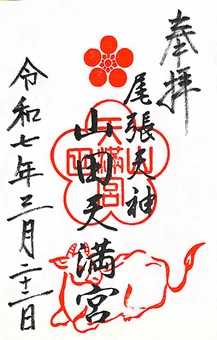 奉拝
尾張天神
山田天満宮
令和七年三月二十二日